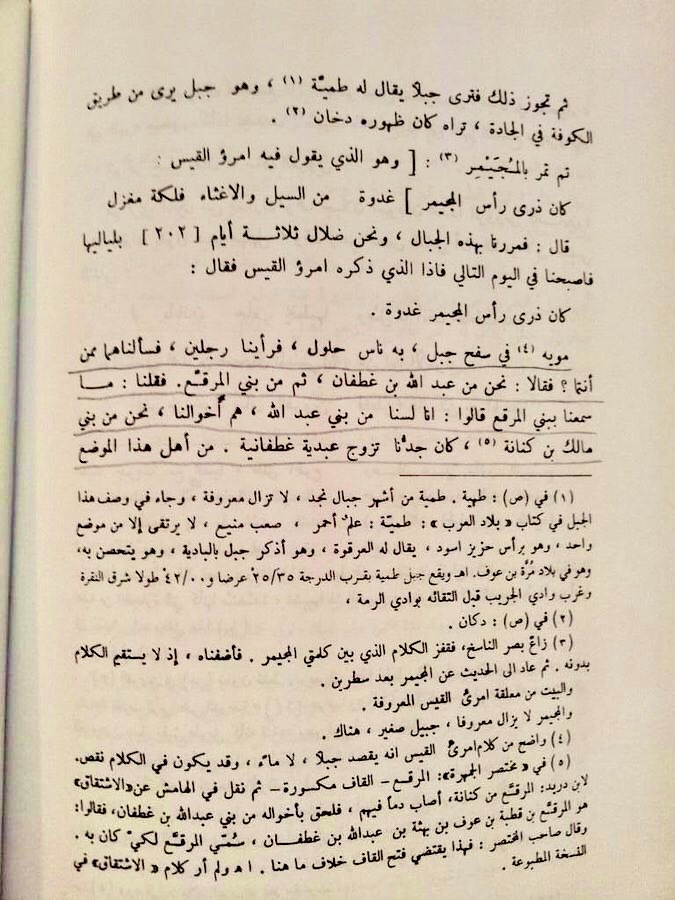 ثم تجوز ذلك فترى جبلاً يقال له طميّة (١) ، وهو جبل يرى من طريق
الكوفة في الجادة ، تراه كان ظهوره دخان (٢) .
تم تمر بالمُجَيْمِر (٣) : [ وهو الذي يقول فيه امرؤ القيس :
كان ذرى رأس المجيمر ] غدوة من السيل والاغثاء فلكة مغزل
قال : فمررنا بهذه الجبال ، ونحن ضلال ثلاثة أيام [ ٢٠٢ ] بلياليها
فاصبحنا في اليوم التالي فاذا الذي ذكره امرؤ القيس فقال :
كان ذرى رأس المجيمر غدوة .
مويه (٤) في سفح جبل ، به ناس حلول ، فرأينا رجلين ، فسألناهما ممن
أنتما ؟ فقالا : نحن من عبد الله بن غطفان ، ثم من بني المرقّع. فقلنا : مـا
سمعنا ببني المرقع قالوا : انا لسنا من بني عبد الله ، هم أخوالنا ، نحن من بني
مالك بن كنانة (٥) ، كان جدُّنا تزوج عبدية غطفانية . من أهل هذا الموضع
(١) في (ص) : طهية . طمية من أشهر جبال نجد ، لا تزال معروفة ، وجاء في وصف هذا
الجبل في كتاب « بلاد العرب » : طميّة : علمٌ أحمر ، صعب منيع ، لا يرتقى إلا من موضع
واحد ، وهو برأس حزيز اسود ، يقال له العرقوة ، وهو أذكر جبل بالبادية ، وهو يتحصن به،
وهو في بلاد مُرَّة بن عوف. اهـ ويقع جبل طمية بقرب الدرجة ٢٥/٣٥ عرضا و ٤٢/٠٠ طولا شرق النقرة
وغرب وادي الجريب قبل التقائه بوادي الرمة ،
(٢) في (ص) : دكان .
(٣) زاغ بصر الناسخ، فقفز الكلام الذي بين كلمتي المجيمر . فأضفناه ، إذ لا يستقيم الكلام
بدونه . ثم عاد الى الحديث عن المجيمر بعد سطرين .
والبيت من معلقة امرئ القيس المعروفة .
والمجيمر لا يزال معروفا ، جبيل صغير ، هناك .
(٤) واضح من كلام امرئ القيس انه يقصد جبلا ، لا ماء ، وقد يكون في الكلام نقص.
(٥) في « مختصر الجمهرة »: المرقع – القاف مكسورة – ثم نقل في الهامش عن «الاشتقاق»
لابن دريد: المرقّع من كنانة، أصاب دماً فيهم ، فلحق بأخواله من بني عبدالله بن غطفان، فقالوا:
هو المرقّع بن قطبة بن عوف بن بهثة بن عبدالله بن غطفـان ، سُمّي المرقّع لكيّ كان به .
وقال صاحب المختصر : فهذا يقتضي فتح القاف خلاف ما هنا . ا ه ولم أر كلام « الاشتقاق» في
النسخة المطبوعة .